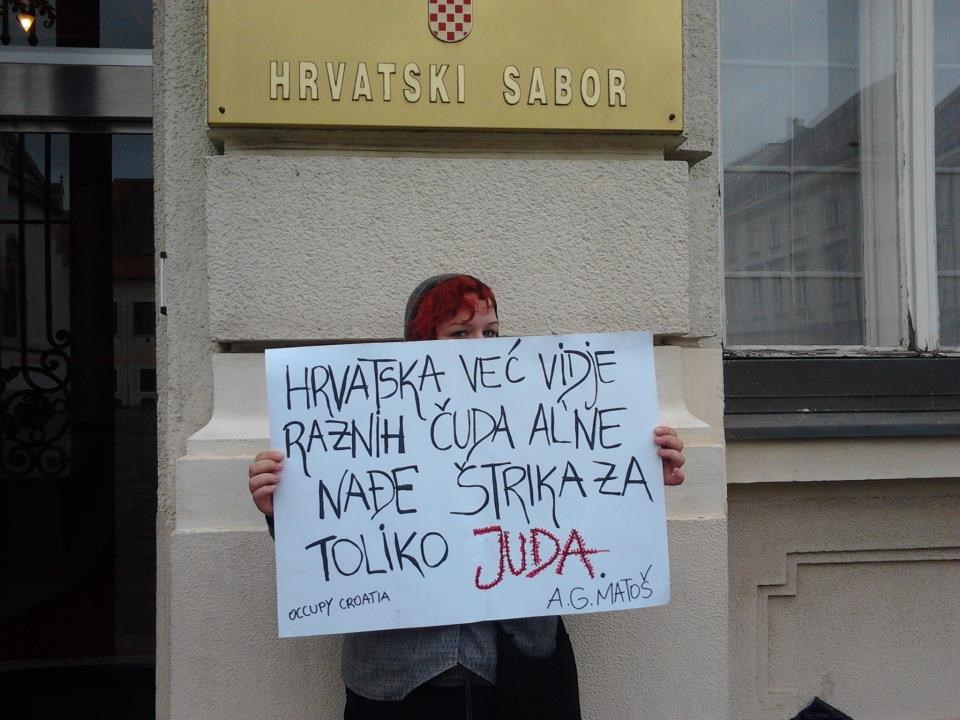 HRVATSKI SABOR
HRVATSKA VEĆ VIDJE
RAZNIH ČUDA AL' NE
NAĐE ŠTRIKA ZA
TOLIKO JUDA.
OCCUPY CROATIA
A.G. MATOŠ